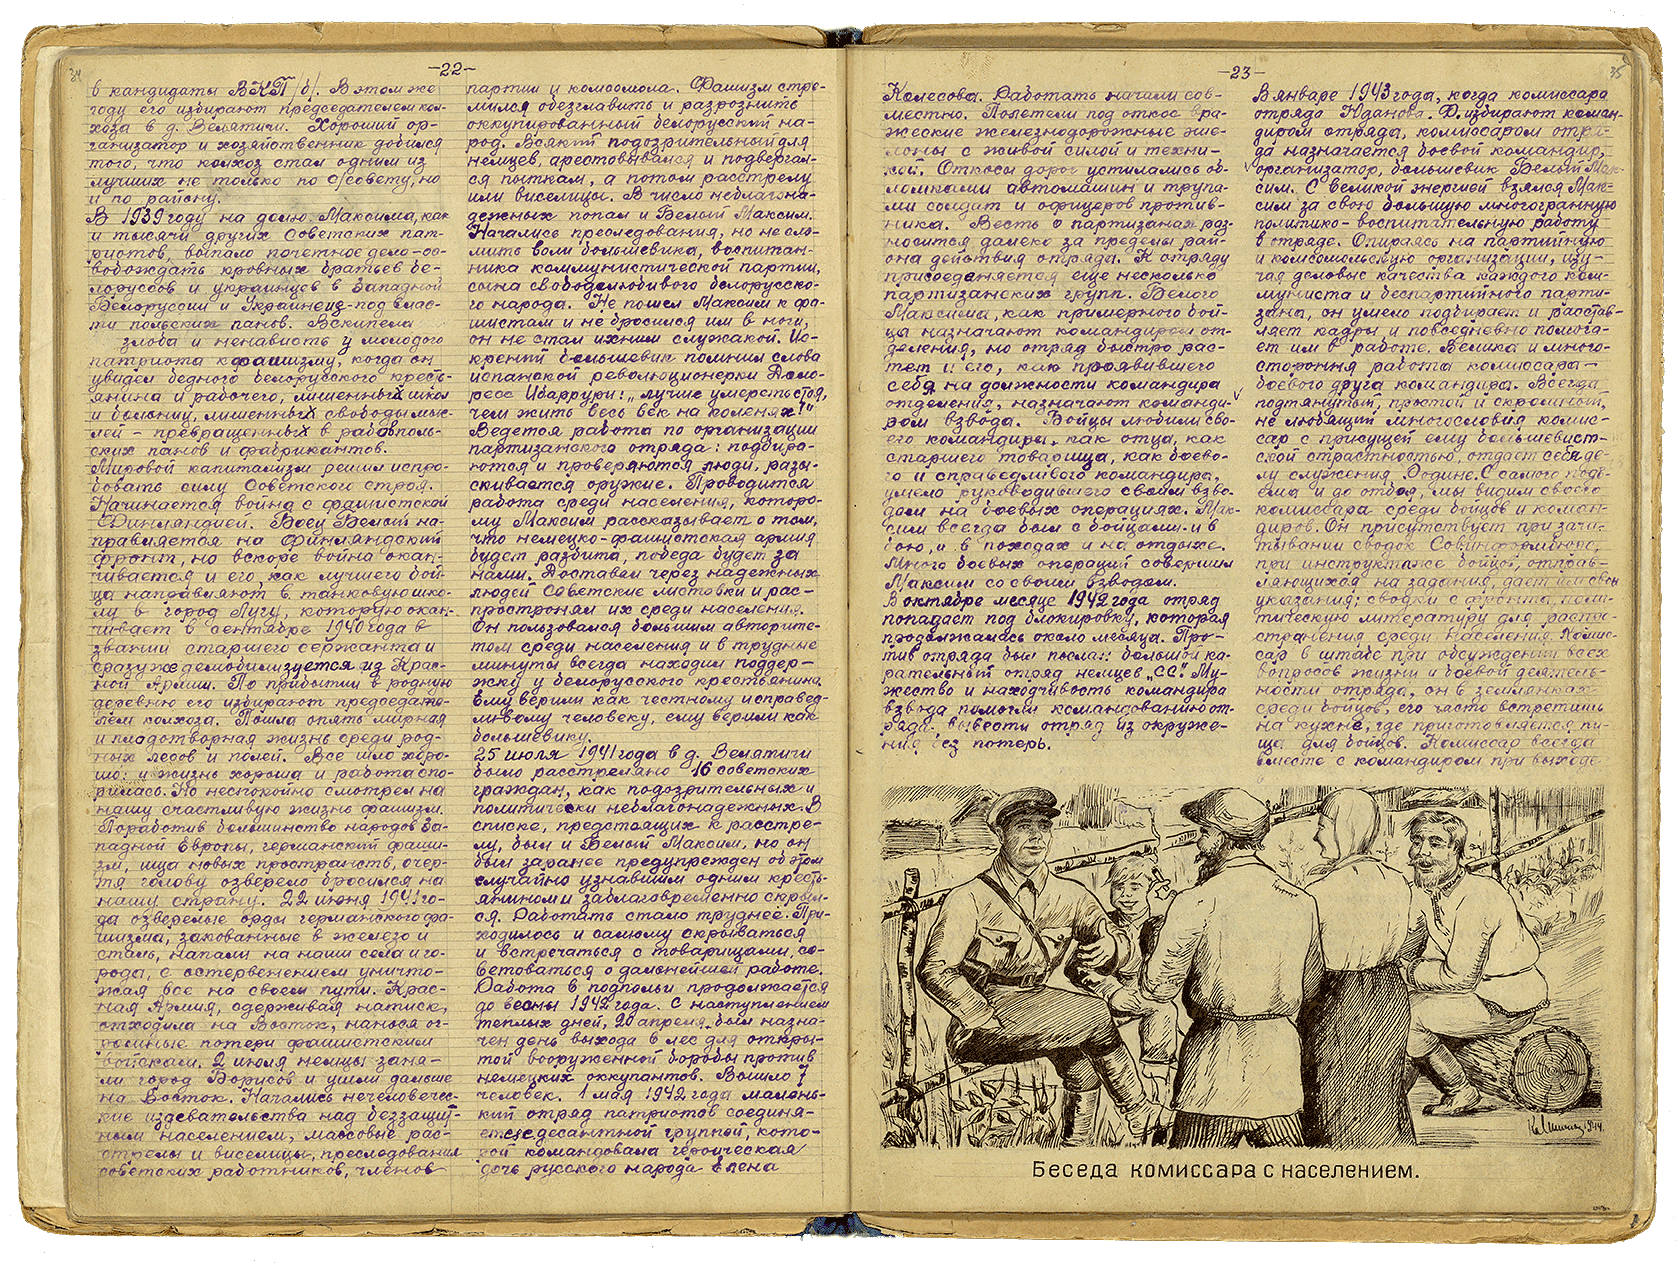 34
-22-
в кандидаты ВКП/б/. В этом же
году его избирают председателем кол-
хоза в д. Велятичи. Хороший ор-
ганизатор и хозяйственник добился
того, что колхоз стал одним из
лучших не только по с/совету, но
и по району.
В 1939 году на долю Максима, как
и тысячи других Советских пат-
риотов, выпало почетное дело-ос-
вобождать кровных братьев бе-
лорусов и украинцев в Западной
Белоруссии и Украине из-под влас-
ти польских панов. Вскипела
злоба и ненависть у молодого
патриота к фашизму, когда он
увидел бедного белорусского кресть-
янина и рабочего, лишенных школ
и больниц, лишенных свободы мыс-
лей - превращенных в рабов поль-
ских панов и фабрикантов.
Мировой капитализм решил испро-
бовать силу Советского строя.
Начинается война с фашистской
Финляндией. Боец Белый на-
правляется на Финляндский
фронт, но вскоре война окан-
чивается и его, как лучшего бой-
ца направляют в танковую шко-
лу в город Лугу, которую окан-
чивает в сентябре 1940 года в
звании старшего сержанта и
сразу же демобилизуется из Крас-
ной Армии. По прибытии в родную
деревню его избирают председате-
лем колхоза. Пошла опять мирная
и плодотворная жизнь среди род-
ных лесов и полей. Все шло хоро-
шо: и жизнь хороша и работа спо-
рилась. Но неспокойно смотрел на
нашу счастливую жизнь фашизм.
Поработив большинство народов За-
падной Европы, германский фаши-
зм, ища новых пространств, очер-
тя голову озверело бросился на
нашу страну. 22 июня 1941 го-
да озверелые орды германского фа-
шизма, закованные в железо и
сталь, напали на наши села и го-
рода, с остервенением уничто-
жая все на своем пути. Крас-
ная Армия, сдерживая натиск,
отходила на Восток, нанося ог-
ромные потери фашистским
войскам. 2 июля немцы заня-
ли город Борисов и ушли дальше
на Восток. Начались нечеловечес-
кие издевательства над беззащит-
ным населением, массовые рас-
стрелы и виселицы, преследования
советских работников, членов
партии и комсомола. Фашизм стре-
мился обезглавить и разрознить
оккупированный белорусский на-
род. Всякий подозрительный для
немцев, арестовывался и подвергал-
ся пыткам, а потом расстрелу
или виселицы. В число неблагона-
дежных попал и Белый Максим.
Начались преследования, но не сло-
мить воли большевика, воспитан-
ника коммунистической партии,
сына свободелюбивого белорусско-
го народа. Не пошел Максим к фа-
шистам и не бросился им в ноги,
он не стал ихним служакой. Ис-
кренний большевик помнил слова
испанской революционерки Доло-
ресс Ибаррури: "лучше умереть стоя,
чем жить весь век на коленях!"
Ведется работа по организации
партизанского отряда: подбира-
ются и проверяются люди, разы-
скивается оружие. Проводится
работа среди населения, которо-
му Максим рассказывает о том,
что немецко-фашистская армия
будет разбита, победа будет за
нами. Доставал через надежных
людей Советские листовки и рас-
простронял их среди населения.
Он пользовался большим авторите-
том среди населения и в трудные
минуты всегда находил поддер-
жку у белорусского крестьянина.
Ему верили как честному и справед-
ливому человеку, ему верили как
большевику.
25 июля 1941 года в д. Велятичи
было расстреляно 16 советских
граждан, как подозрительных и
политически неблагонадежных. В
списке, предстоящих к расстре-
лу, был и Белый Максим, но он
был заранее предупрежден об этом
случайно узнавшим одним кресть-
янином и заблаговременно скрыл-
ся. Работать стало труднее. При-
ходилось и самому скрываться
и встречаться с товарищами, со-
ветоваться о дальнейшей работе.
Работа в подпольи продолжается
до весны 1942 года. С наступлением
теплых дней, 20 апреля был назна-
чен день выхода в лес для откры-
той вооруженной борьбы против
немецких оккупантов. Вышло 7
человек. 1 мая 1942 года малень-
кий отряд патриотов соединя-
ется с десантной группой, кото-
рой командовала героическая
дочь русского народа Елена
-23-
35
Колесова. Работать начали сов-
местно. Полетели под откос вра-
жеские железнодорожные эше-
лоны с живой силой и техни-
кой. Откосы дорог устилались об-
ломками автомашин и трупа-
ми солдат и офицеров против-
ника. Весть о партизанах раз-
носится далеко за пределы рай-
она действия отряда. К отряду
присоеденяется еще несколько
партизанских групп. Белого
Максима, как примерного бой-
ца назначают командиром от-
деления, но отряд быстро рас-
тет и его, как проявившего
себя на должности командира
отделения, назначают команди-
ром взвода. Бойцы любили сво-
его командира, как отца, как
старшего товарища, как боево-
го и справедливого командира,
умело руководившего своим взво-
дом на боевых операциях. Мак-
сим всегда был с бойцами: и в
бою, и в походах и на отдыхе.
Много боевых операций совершил
Максим со своим взводом.
В октябре месяце 1942 года отряд
попадает под блокировку, которая
продолжалась около месяца. Про-
тив отряда был послан большой ка-
рательный отряд немцев "СС". Му-
жество и находчивость командира
взвода помогли командованию от-
ряда вывести отряд из окруже-
ния без потерь.
В январе 1943 года, когда комиссара
отряда Жданова. Д. избирают коман-
диром отряда, комиссаром отря-
да назначается боевой командир,
организатор, большевик Белый Мак-
сим. С великой энергией взялся Мак-
сим за свою большую многогранную
политико-воспитательную работу
в отряде. Опираясь на партийную
и комсомольскую организации, изу-
чая деловые качества каждого ком-
муниста и беспартийного парти-
зана, он умело подбирает и расстав-
ляет кадры и повседневно помога-
ет им в работе. Велика и много-
сторонняя работа комиссара-
боевого друга командира. Всегда
подтянутый, простой и скромный,
не любящий многословия комис-
сар с присущей ему большевист-
ской страстностью, отдает себя де-
лу служения Родине. С самого подъ-
ема и до отбоя, мы видим своего
комиссара среди бойцов и коман-
диров. Он присутствует при зачи-
тывании сводок Совинформбюро,
при инструктаже бойцов, отправ-
ляющихся на задания, дает им свои
указания; сводки с фронта, поли-
тическую литературу для распро-
странения среди населения. Комис-
сар в штабе при обсуждении всех
вопросов жизни и боевой деятель-
ности отряда, он в землянках
среди бойцов, его часто встретишь
на кухне, где приготовляется пи-
ща для бойцов. Комиссар всегда
вместе с командиром при выходе
1944
Беседа комиссара с населением.